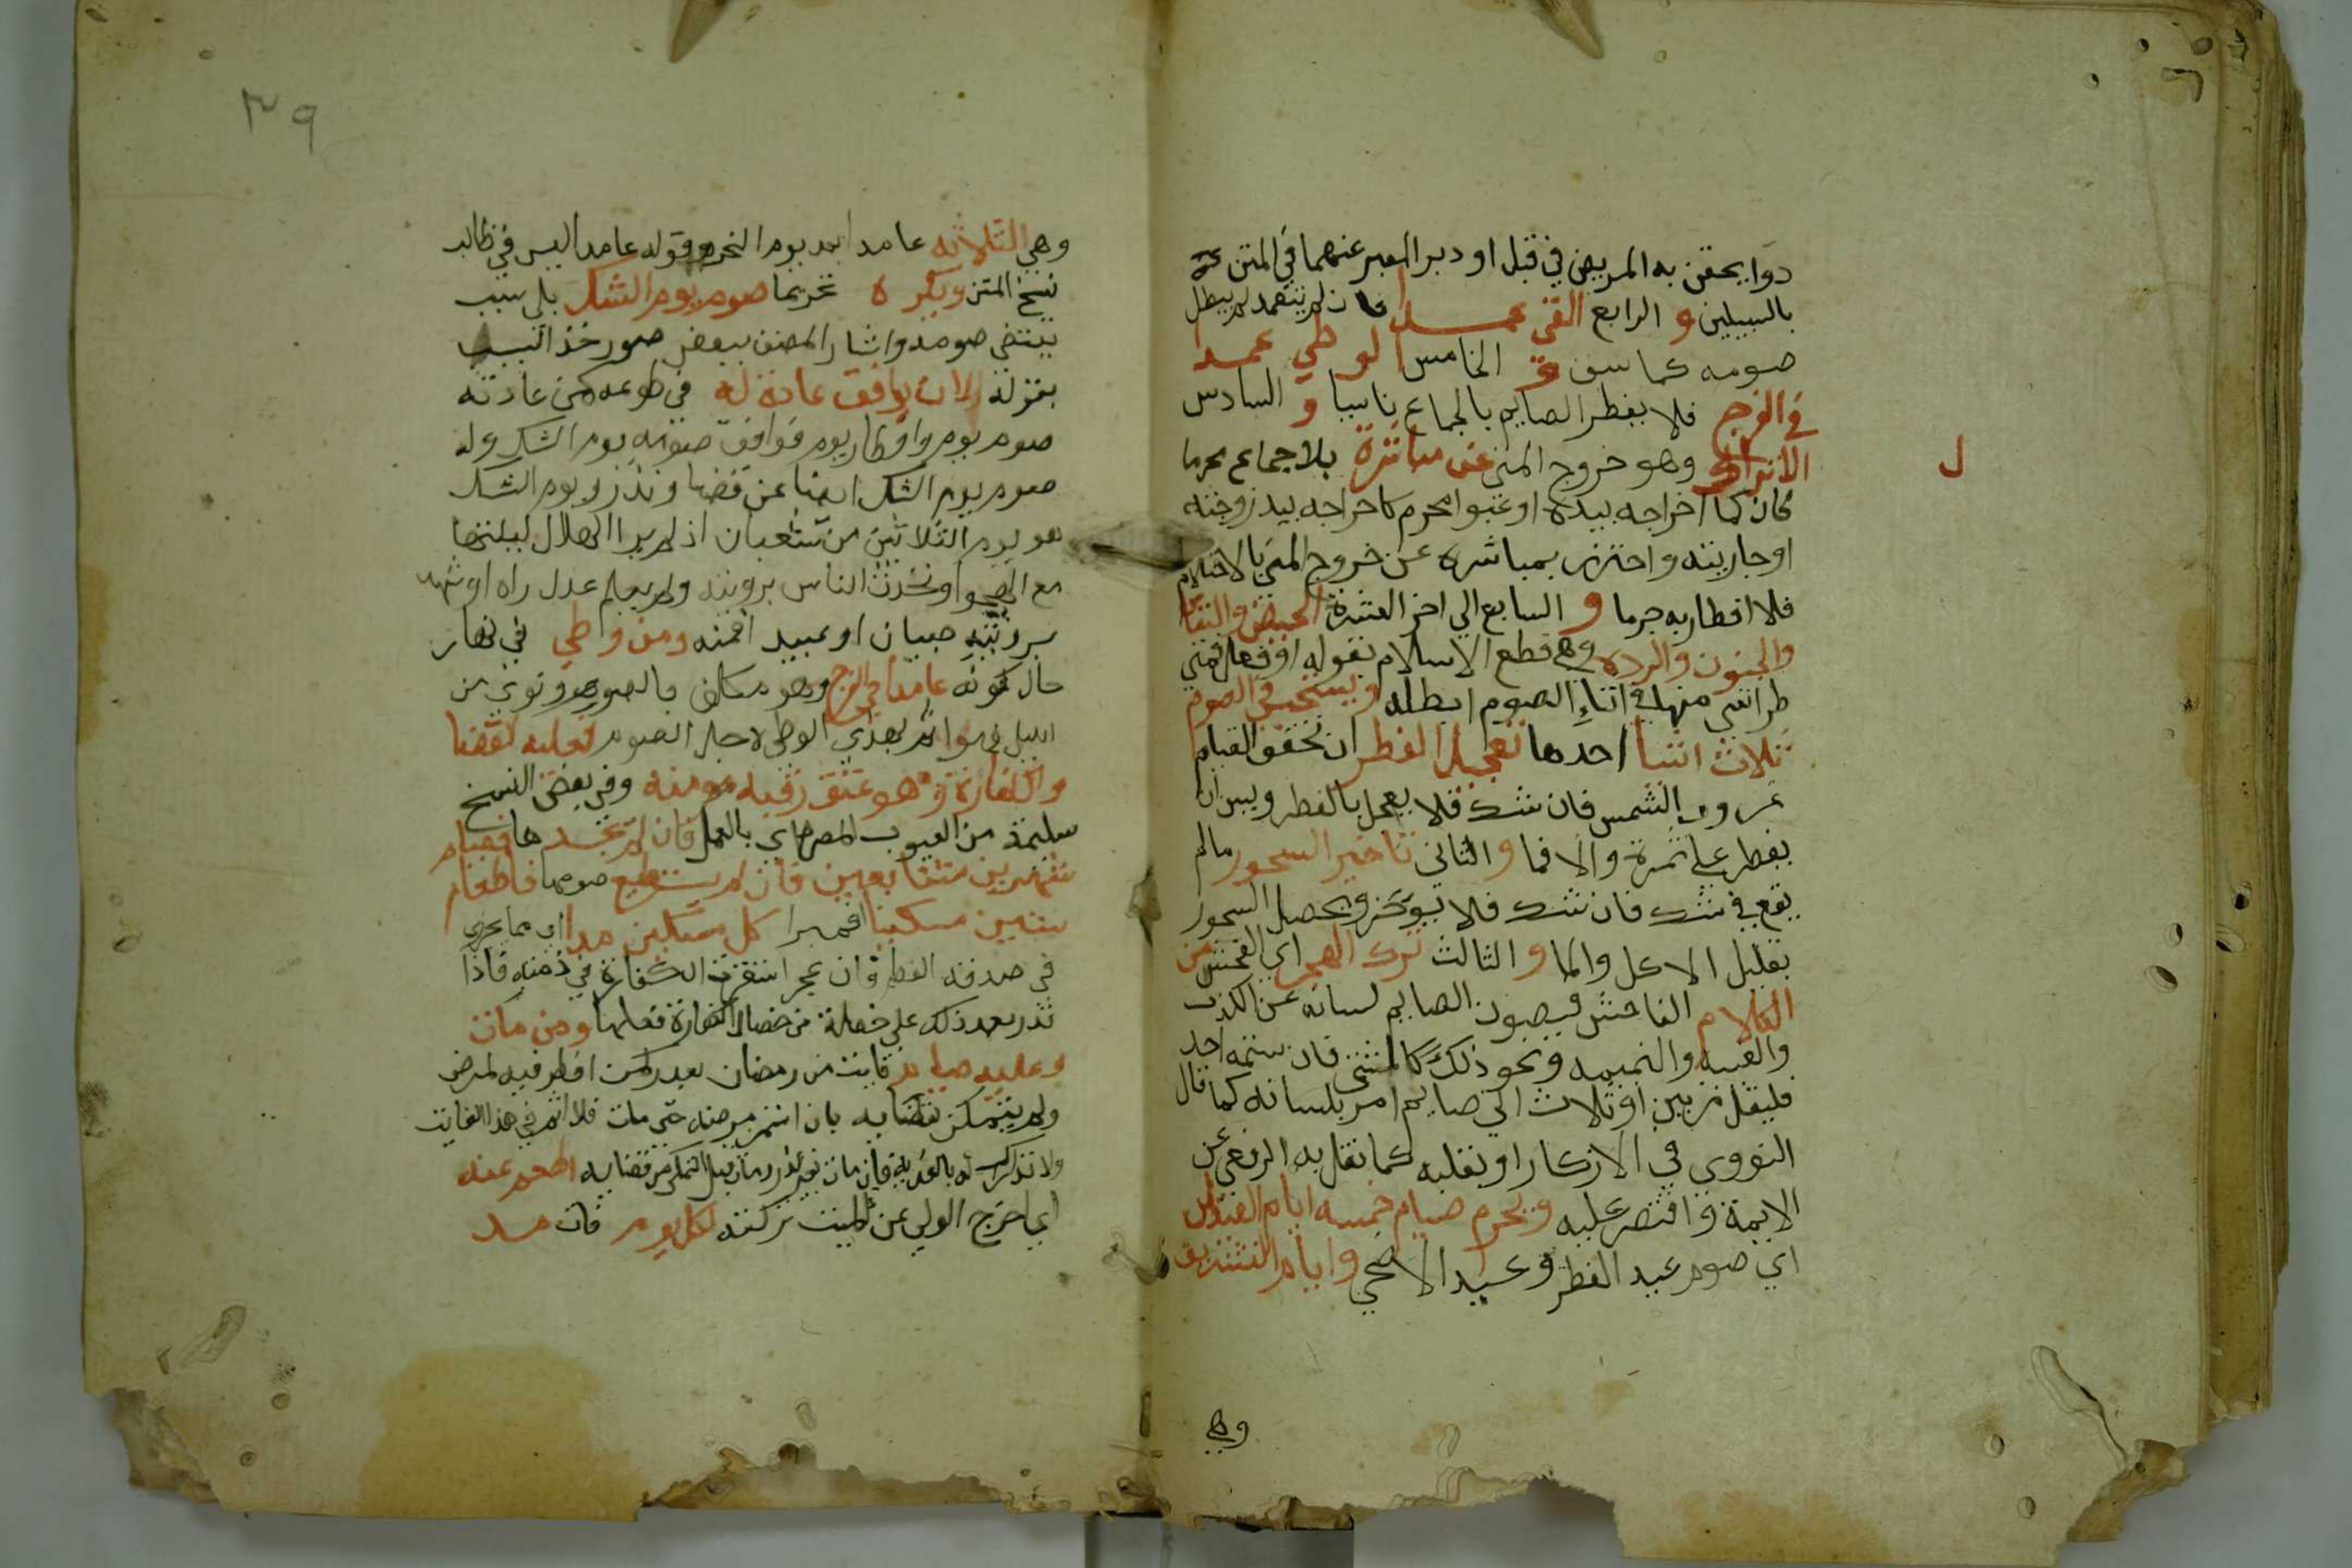 دوا يحقن به المريض في قبل او دبر المعبر عنهما في المتن
بالسبيلين و الرابع القي عمدا فان لم يتعمد لم يبطل
صومه كما سبق و الخامس الوطي عمدا
في الفرج فلا يفطر الصايم بالجماع ناسيا و السادس
الانزال وهو خروج المني عن مباشرة بلا جماع محرما
كان كما اخراجه بيده او غير محرم كاخراجه بيد زوجته
او جاريته واحترز بمباشرة عن خروج المني بالاحتلام
فلا افطار به جزما و السابع الي اخر العشرة الحيض والنفاس
والجنون والردة وهي قطع الاسلام بقول او فعل فمتي
طرا شي منها في اثناء الصوم ابطله ويستحب في الصوم
ثلاث اشيا احدها تعجيل الفطر ان تحقق الصيام
غروب الشمس فان شك فلا يعجل بالفطر ويسن ان
يفطر علي تمرة والا فما و الثاني تاخير السحور مالم
يقع في شك فان شك فلا يوخر ويحصل السحور
بقليل الاكل والما و الثالث ترك الهجر اي الفحش من
الكلام الفاحش فيصون الصايم لسانه عن الكذب
والغيبه والنميمه ونحو ذلك كالشتم فان شتمه احد
فليقل مرتين او ثلاث اني صايم اما بلسانه كما قال
النووي في الاذكار او بقلبه كما نقل به الرافعي عن
الايمة واقتصر عليه ويحرم صيام خمسه ايام العيدان
اي صوم عيد الفطر وعيد الاضحي وايام التشريق
وهي
ل
٣٩
وهي الثلاثه بعد يوم النحر وقوله عامدا ليس في غالب
نسخ المتن ويكره تحريما صوم يوم الشك بلا سبب
يقتضي صومه واشار المصنف لبعض صور هذا السبب
بقوله الا ان يوافق عادة له في تطوعه كمن عادته
صوم يوم وافطار يوم فوافق صومه يوم الشك وله
صوم يوم الشك ايضا عن قضا ونذر ويوم الشك
هو يوم الثلاثين من شعبان اذا لم ير الهلال ليلتها
مع الصحو او تحدث الناس برويته ولم يعلم عدل راه او شهد
برويته صبيان او عبيد او فسقه ومن وطي في نهار
حال كونه عامدا في الفرج وهو مكلف بالصوم ونوي من
الليل وهو اثم بهذا الوطي لاجل الصوم فعليه القضا
والكفارة وهو عتق رقبه مومنه وفي بعض النسخ
سليمة من العيوب المضره بالعمل فان لم يجدها فصيام
شهرين متتابعين فان لم يستطع صومهما فاطعام
ستين مسكينا او فقيرا كل مسكين مدا اي مما يجزي
في صدقه الفطر فان عجز استقرت الكفارة في ذمته فاذا
قدر بعد ذلك علي خصلة من خصال الكفارة فعلها ومن مات
وعليه صيام فايت من رمضان بعذر كمن افطر فيه لمرض
ولم يتمكن من قضايه بان استمر مرضه حتي مات فلا اثم في هذا الفايت
ولا تدارك له بالفدية فان مات بغير عذر ومات قبل التمكن من قضايه اطعم عنه
اي اخرج الولي عن الميت من تركته لكل يوم فات مد